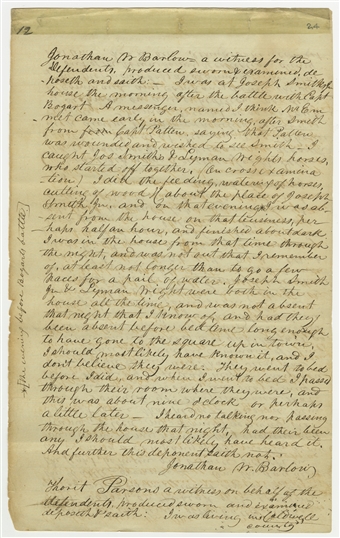 12
24
Jonathan W Barlow a witness for the
defendents, produced sworn & examined, de
poseth and saith: – I was at Joseph Smith's
house the morning after the battle with Capt
Bogart A messenger, named I think
met came early in the morning, after Smith
from from Capt Patten, saying that Patten
was wounded and wished to see Smith – I
caught Jos Smith & Lyman Wights horses,
who started off together. (On cross examina
tion) I did the feeding, watering of horses,
cutting of wood, &c about the place of Joseph
Smith Jr. and on that evening I was ab
sent from the house on that business, per
haps half an hour, and finished about dark
I was in the house from that time through
the night, and was not out that I remember
of, at least not longer than to go a few
paces for a pail of water. Joseph Smith
jr & Lyman Wight were both in the
house all the time, and was not absent
that night that I know of, and had they
been absent before bed time long enough
to have gone to the square up in town,
I should most likely have known it, and I
don't believe they were. They went to bed
before I did, and when I went to bed I passed
through their room where they were, and
this was about nine o'clock or perhaps
a little later – I heard no talking nor passing
through the house that night, had their been
any I should most likely have heard it.
And further this deponent saith not.
Jonathan W. Barlow
Thorit Parsons a witness on behalf of the
defendents, produced sworn and examined
deposeth & saith: I was living in Caldwell
county
[of the evening before Bogarts battle]